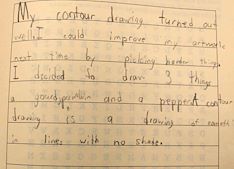 My contour drawing turned out
well. I could improve my artwork
next time by picking harder things.
I decided to draw 3 things
a gourd, pumpkin and a pepper. A contour
drawing is a drawing of
in lines with no shade.